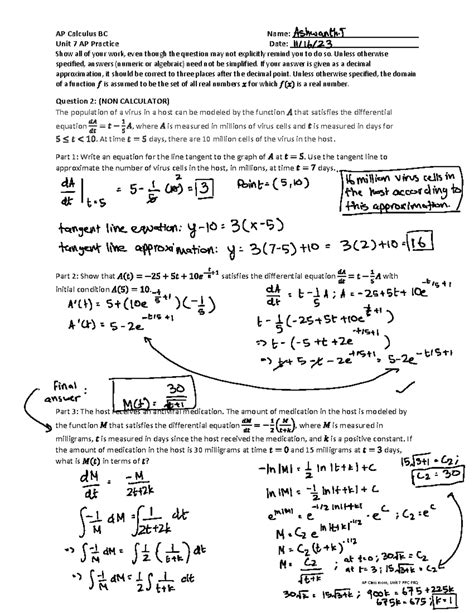 AP Calculus BC Name: Ashwanth.T
Unit 7 AP Practice Date: 11/16/23
Show all of your work, even though the question may not explicitly remind you to do so. Unless otherwise
specified, answers (numeric or algebraic) need not be simplified. If your answer is given as a decimal
approximation, it should be correct to three places after the decimal point. Unless otherwise specified, the domain
of a function f is assumed to be the set of all real numbers x for which f(x) is a real number.
Question 2: (NON CALCULATOR)
The population of a virus in a host can be modeled by the function A that satisfies the differential
equation dA/dt = t − 1/5 A, where A is measured in millions of virus cells and t is measured in days for
5 ≤ t < 10. At time t = 5 days, there are 10 million cells of the virus in the host.
Part 1: Write an equation for the line tangent to the graph of A at t = 5. Use the tangent line to
approximate the number of virus cells in the host, in millions, at time t = 7 days.
dA/dt | t=5 = 5 - 1/5 (10) 2 = 3 Point = (5,10)
16 million virus cells in
the host according to
this approximation.
tangent line equation: y-10 = 3(x-5)
tangent line approximation: y = 3(7-5)+10 = 3(2)+10 = 16
Part 2: Show that A(t) = −25 + 5t + 10e^(-t/5+1) satisfies the differential equation dA/dt = t − 1/5 A with
initial condition A(5) = 10.
A'(t) = 5+(10e^(-t/5+1))(-1/5)
A'(t) = 5-2e^(-t/5+1)
dA/dt = t - 1/5 A ; A = -25+5t+10e^(-t/5+1)
t - 1/5(-25+5t+10e^(-t/5+1))
=> t-(-5+t+2e^(-t/5+1))
=> t+5-t-2e^(-t/5+1) = 5-2e^(-t/5+1)
Final answer:
M(t) = 30/√(t+1)
Part 3: The host receives an antiviral medication. The amount of medication in the host is modeled by
the function M that satisfies the differential equation dM/dt = −1/2 (M/(t+k)), where M is measured in
milligrams, t is measured in days since the host received the medication, and k is a positive constant. If
the amount of medication in the host is 30 milligrams at time t = 0 and 15 milligrams at time t = 3 days,
what is M(t) in terms of t?
dM/dt = -M/(2t+2k)
∫ -1/M dM = ∫ 1/(2t+2k) dt
=> ∫ -1/M dM = ∫ 1/2 (1/(t+k)) dt
=> ∫ -1/M dM = 1/2 ∫ 1/(t+k) dt
-ln|M| = 1/2 ln|t+k| + C
ln|M| = -1/2 ln|t+k| + C
e^(ln|M|) = e^(-1/2 ln|t+k|) · e^C ; C2 = e^C
M = C2 e^(ln|t+k|^(-1/2))
M = C2 (t+k)^(-1/2)
M = C2/√(t+k) ; at t=0; 30√k = C2
at t=3; 15√(3+k) = C2
15√(3+1) = C2;
C2 = 30
30√k = 15√(3+k); 900k = 675+225k
675k = 675; k=1